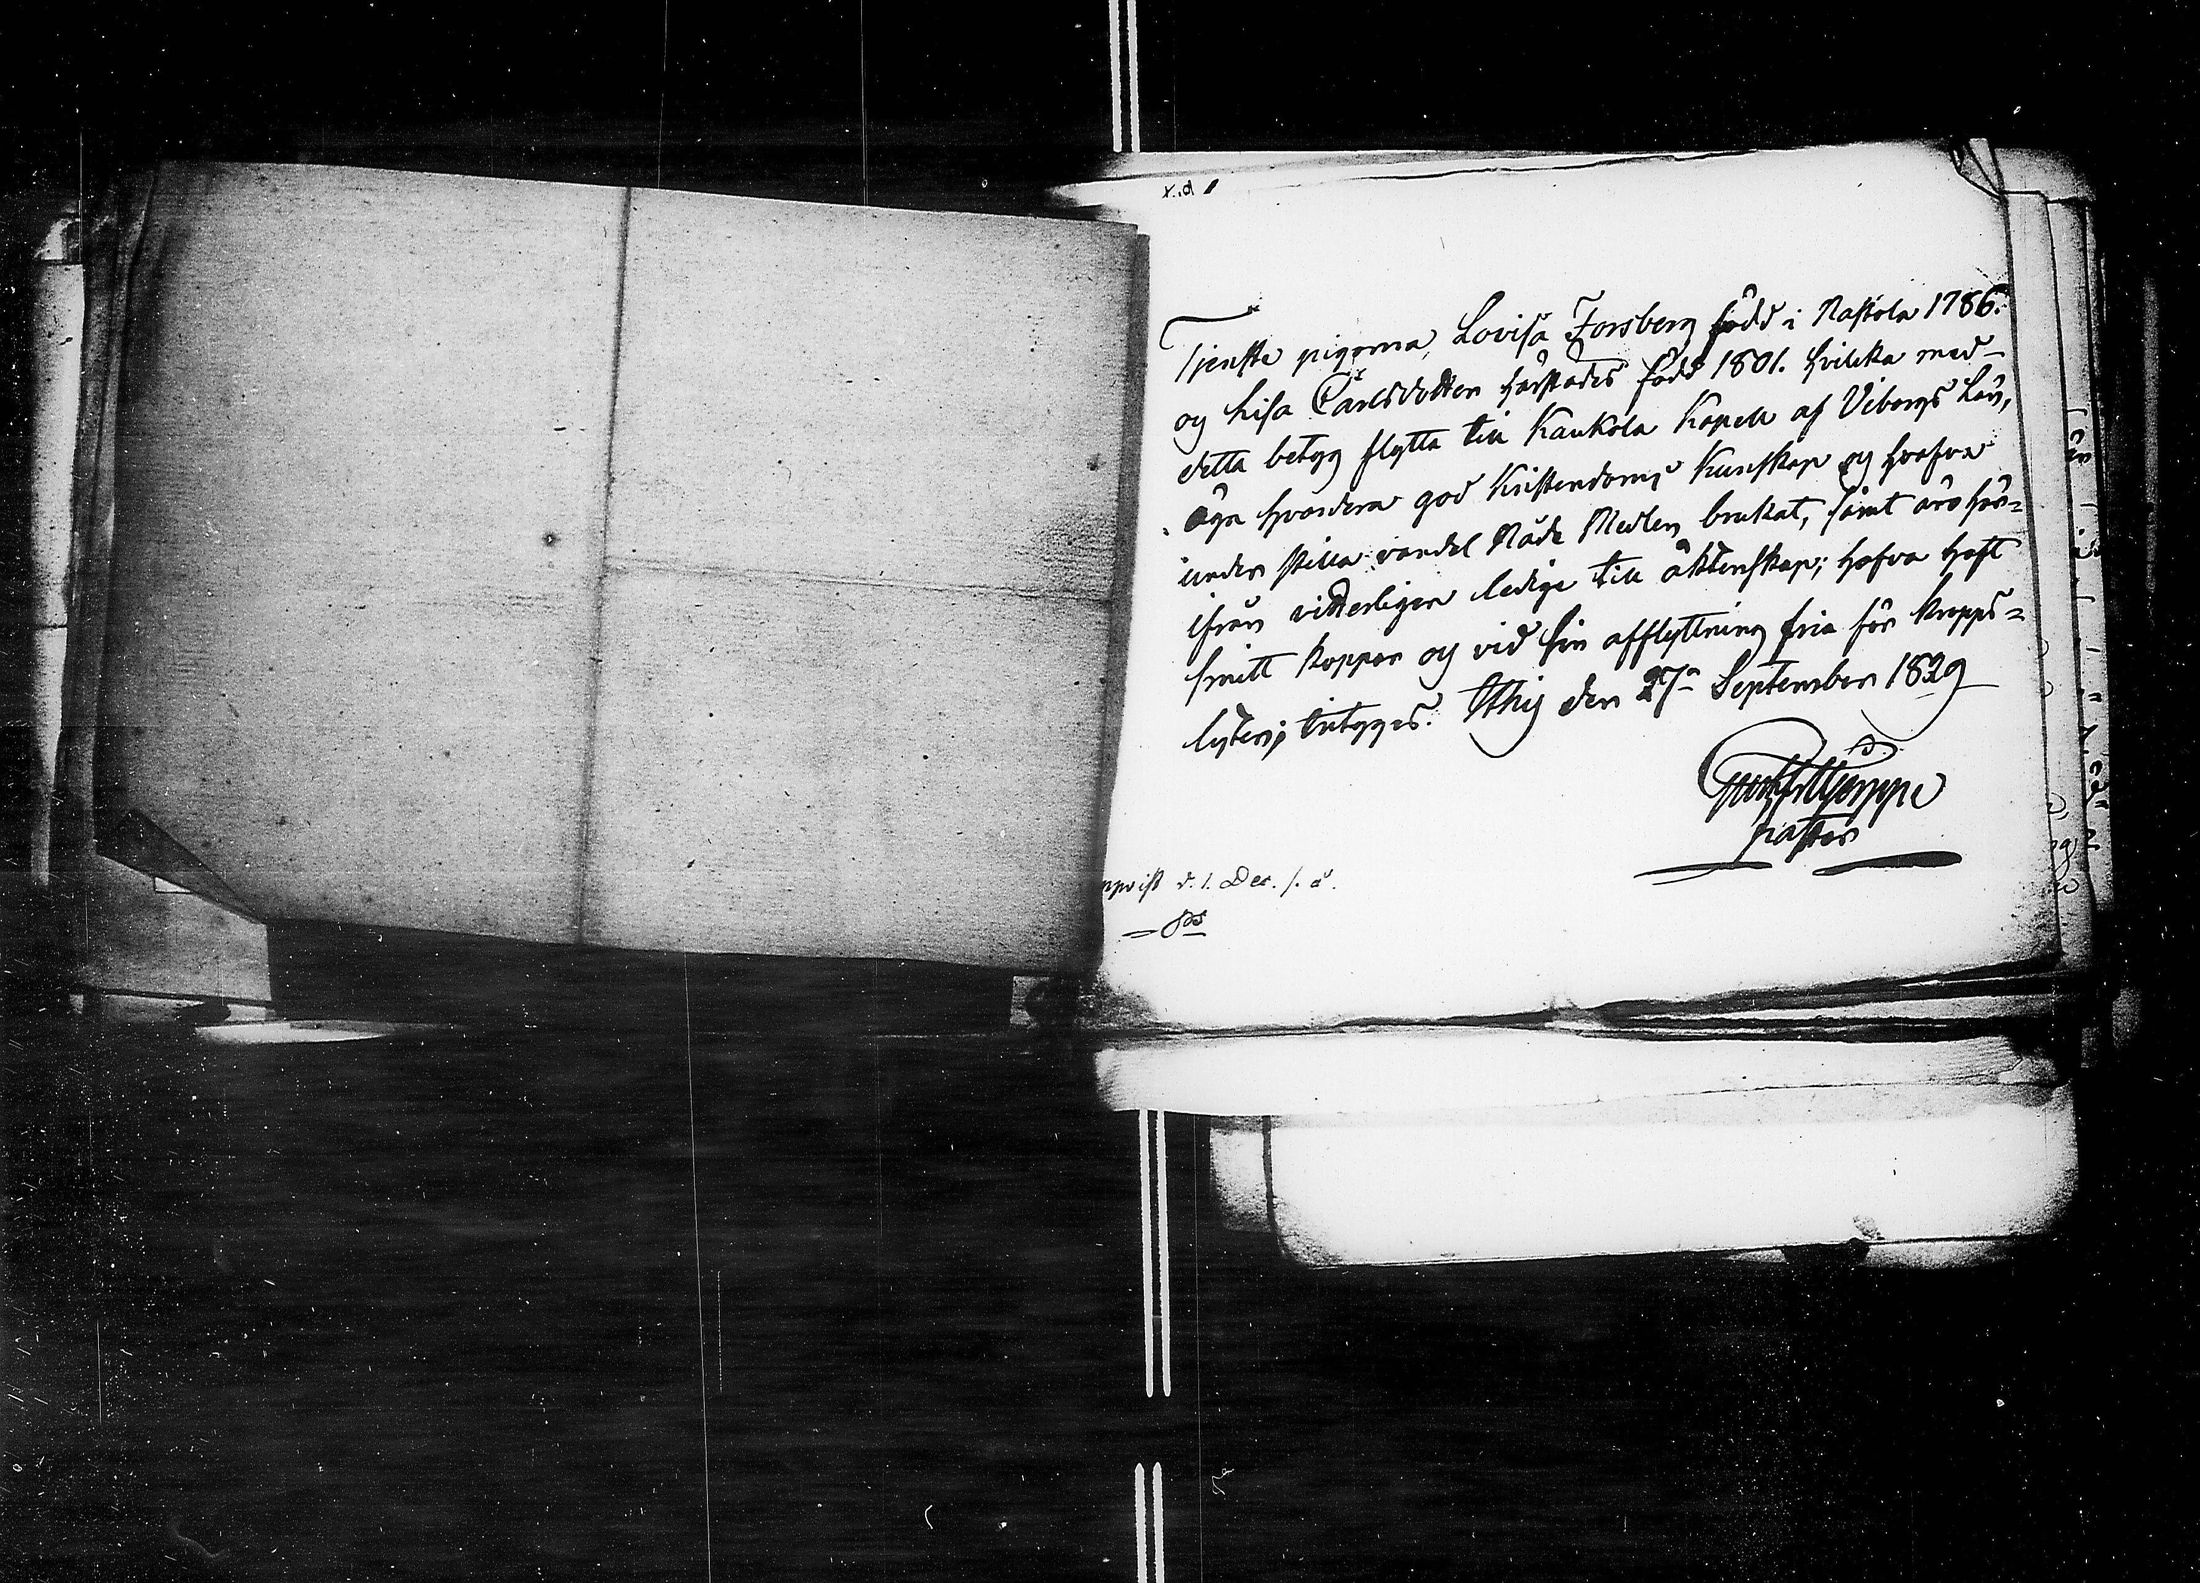 Tjenste pigorna, Lovisa Forsberg född i Nastola 1786.
og Lisa Carlsdotter härstädes född 1801. hvilcka med-
detta betyg flytta till Kaukola Kapell af Viborgs Län,
äga hvardera god Kristendoms Kunskap og hafva
under stilla vandel Nåde Medlen brukat, samt äro här=
ifrån vitterligen ledige till äktenskap; hafva haft
smitt koppor og vid sin afflyttning fria för kropps=
lyten; betygges. Ithis den 27de September 1829
pastor
d. 1. Dec. s. å.